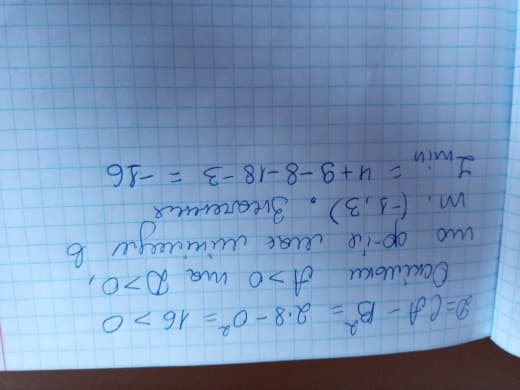 D = CA - B² = 2·8 - 0² = 16 > 0
Оскільки A > 0 та D > 0,
то ф-ія має мінімум в
т. (-1, 3). Значення
Zmin = 4+9-8-18-3 = -16